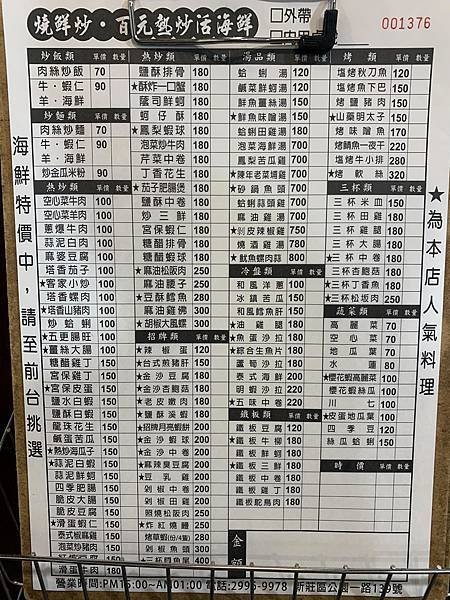 燒鮮炒·百元熱炒活海鮮
□外帶
001376
海鮮特價中，請至前台挑選
★為本店人氣料理
炒飯類 單價 數量
肉絲炒飯 70
牛·蝦仁 90
羊·海鮮
炒麵類 單價 數量
肉絲炒麵 70
牛·蝦仁 90
羊·海鮮
炒金瓜米粉 90
熱炒類 單價 數量
空心菜牛肉 100
空心菜羊肉 100
蔥爆牛肉 100
蒜泥白肉 100
麻婆豆腐 100
塔香茄子 100
★客家小炒 100
塔香螺肉 100
★塔香山豬肉 100
炒蛤蜊 100
★五更腸旺 100
★薑絲大腸 100
糖醋雞丁 150
宮保雞丁 150
★宮保皮蛋 150
鹽水白蝦 150
鹽酥白蝦 150
龍珠花生 150
鹹蛋苦瓜 150
★熱炒海瓜子 150
★蒜泥白蝦 150
蒜泥鮮蚵 150
四季肥腸 150
脆皮大腸 150
脆皮豆腐 150
★滑蛋蝦仁 150
泰式椒麻雞 150
泡菜炒豬肉 150
滑蛋牛肉 180
熱炒類 單價 數量
鹽酥排骨 180
★酥炸一口蟹 180
蔭司鮮蚵 180
蚵仔酥 180
★鳳梨蝦球 180
泡菜炒牛肉 180
芹菜中卷 180
丁香花生 180
★茄子肥腸煲 180
鹽酥中卷 180
炒三鮮 180
宮保蝦仁 180
糖醋排骨 180
糖醋蝦球 180
★麻油松阪肉 250
麻油腰子 250
★豆酥鱈魚 280
麻油雞佛 300
★胡椒大風螺 300
招牌類 單價 數量
★辣椒蛋 120
★台式煎豬肝 180
★金沙豆腐 180
★金沙杏鮑菇 180
★老皮嫩肉 180
★鹽酥溪蝦 180
★招牌月亮蝦餅 200
★金沙蝦球 200
★金沙中卷 200
★麻辣臭豆腐 200
★豆乳雞 200
剁椒中卷 200
剁椒田雞 200
照燒松阪肉 250
★炸紅燒鰻 250
烤草蝦(份/4隻) 280
剁椒魚頭 300
★三杯魚尾 400
湯品類 單價 數量
蛤蜊湯 120
鹹菜鮮蚵湯 120
鮮魚薑絲湯 150
★鮮魚味噌湯 150
蛤蜊田雞湯 150
泡菜海鮮湯 200
鳳梨苦瓜雞 700
★陳年老菜埔雞 700
★砂鍋魚頭 700
蛤蜊蒜頭雞 700
麻油雞湯 700
★剝皮辣椒雞 750
燒酒雞湯 780
★魷魚螺肉蒜 800
冷盤類 單價 數量
和風洋蔥 100
冰鎮苦瓜 150
和風鱈魚肝 150
★油雞腿 180
★魚蛋沙拉 180
★綜合生魚片 180
蘆筍沙拉 180
泰式海鮮 200
明蝦沙拉 220
★五味中卷 220
鐵板類 單價 數量
鐵板豆腐 100
★鐵板牛柳 180
鐵板鮮蚵 180
★鐵板三鮮 180
★鐵板中卷 180
鐵板雞丁 180
鐵板鴕鳥肉 180
金
烤類 單價 數量
塩烤秋刀魚 120
塩烤魚下巴 120
塩烤豬肉 150
★山藥明太子 150
烤味噌魚 170
烤鯖魚一夜干 220
塩烤牛小排 280
★烤軟絲 320
三杯類 單價 數量
三杯米血 150
三杯田雞 180
三杯雞腿 180
三杯大腸 180
★三杯中卷 180
三杯杏鮑菇 180
★三杯丁香魚 180
★三杯松坂肉 250
蔬菜類 單價 數量
高麗菜 70
空心菜 70
地瓜葉 70
水蓮 80
★櫻花蝦高麗菜 100
櫻花蝦絲瓜 100
川七 100
★皮蛋地瓜葉 100
四季豆 120
絲瓜蛤蜊 150
時價 單價 數量
營業時間:PM16:00~AM01:00 電話:2996-9978 新莊區公園一路139號